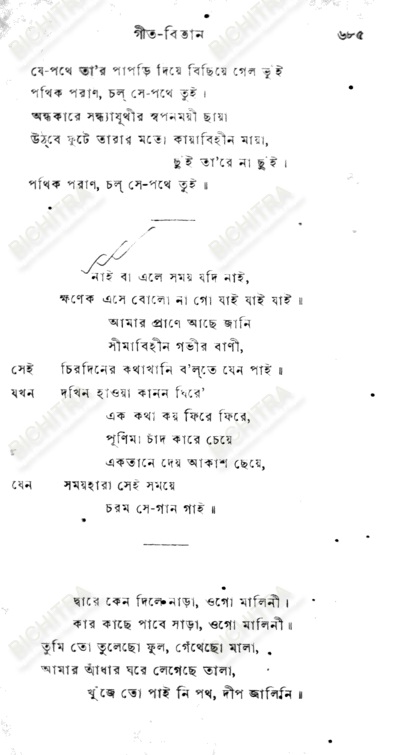 গীত-বিতান ৬৮৫
যে-পথে তা'র পাপড়ি দিয়ে বিছিয়ে গেল ভুঁই
পথিক পরাণ, চল্ সে-পথে তুই।
অন্ধকারে সন্ধ্যাযূথীর স্বপনময়ী ছায়া
উঠ্‌বে ফুটে তারার মতো কায়াবিহীন মায়া,
ছুঁই তা'রে না ছুঁই।
পথিক পরাণ, চল্ সে-পথে তুই॥
নাই বা এলে সময় যদি নাই,
ক্ষণেক এসে বোলো না গো যাই যাই যাই॥
আমার প্রাণে আছে জানি
সীমাবিহীন গভীর বাণী,
সেই চিরদিনের কথাখানি ব'ল্‌তে যেন পাই॥
যখন দখিন হাওয়া কানন ঘিরে'
এক কথা কয় ফিরে ফিরে,
পূর্ণিমা চাঁদ কারে চেয়ে
একতানে দেয় আকাশ ছেয়ে,
যেন সময়হারা সেই সময়ে
চরম সে-গান গাই॥
দ্বারে কেন দিলে নাড়া, ওগো মালিনী।
কার কাছে পাবে সাড়া, ওগো মালিনী॥
তুমি তো তুলেছো ফুল, গেঁথেছো মালা,
আমার আঁধার ঘরে লেগেছে তালা,
খুঁজে তো পাই নি পথ, দীপ জালিনি॥
BICHITRA